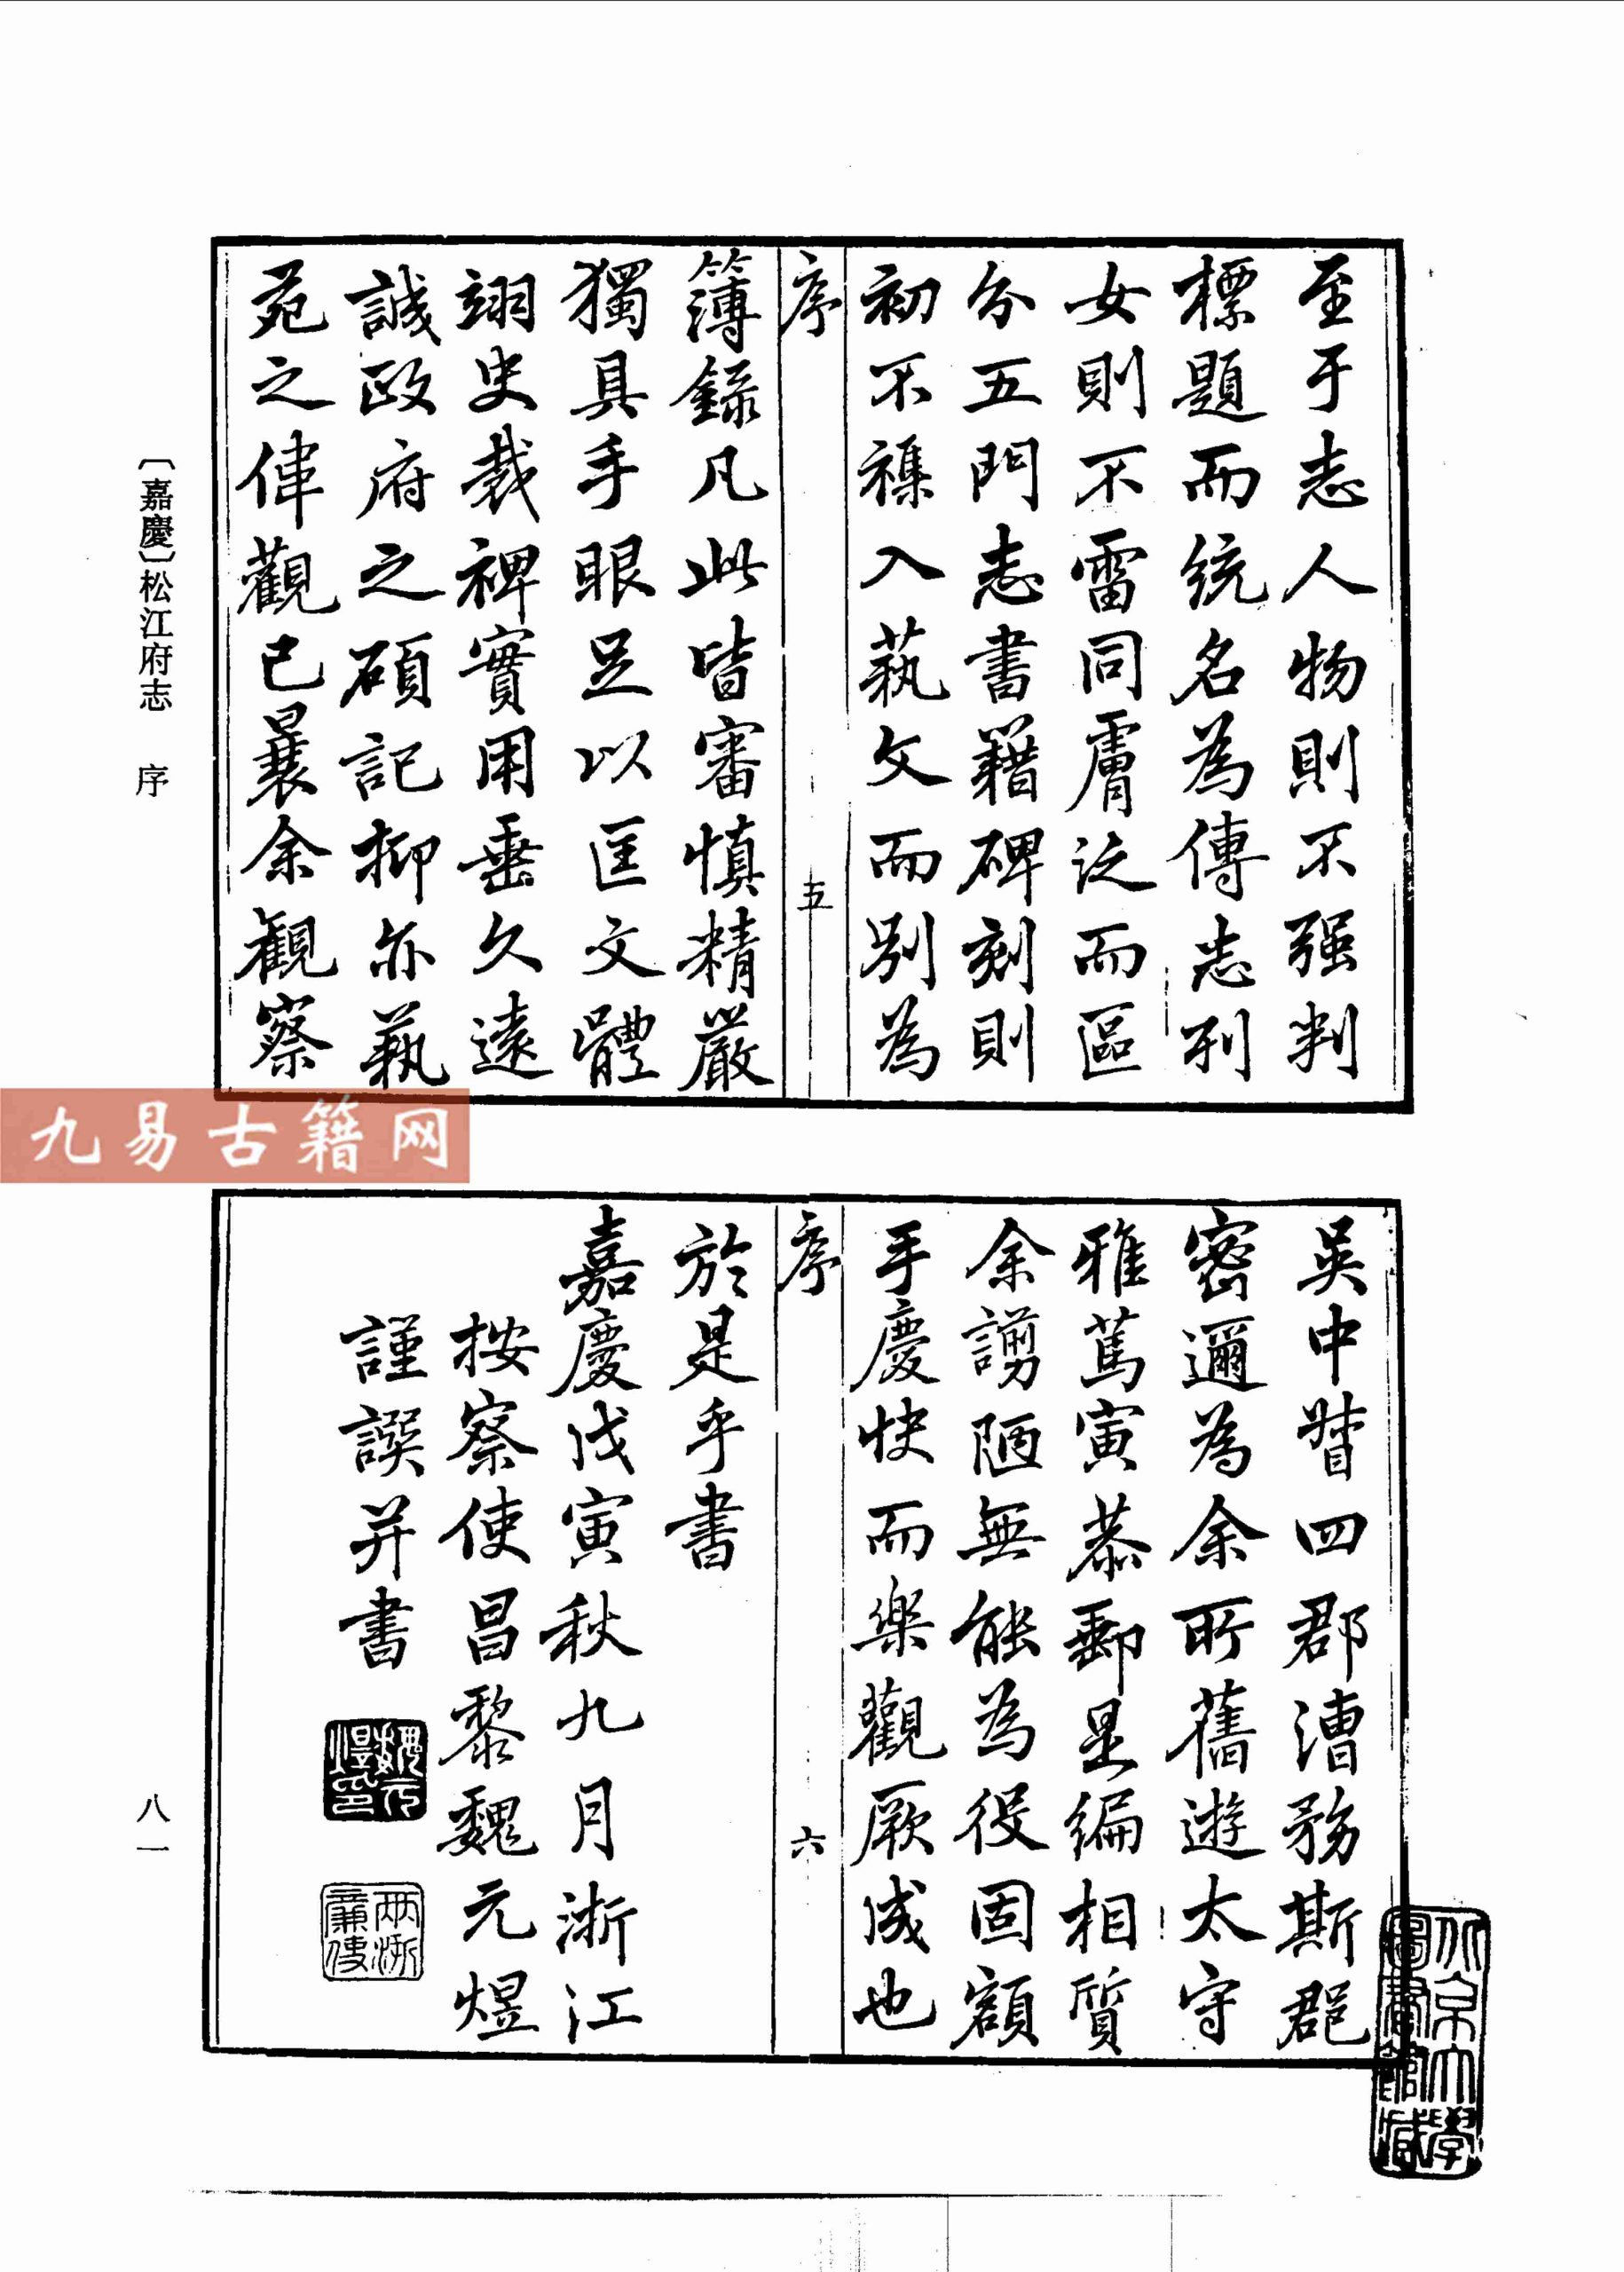 至于志人物則不强判
標題而統名為傳志列
女則不雷同膚泛而區
分五門志書籍碑刻則
初不襍入蓺文而别為
序
五
簿錄凡此皆審慎精嚴
獨具手眼足以匡文體
翊史裁裨實用垂久遠
誠政府之碩記抑亦蓺
苑之偉觀已曩余觀察
〔嘉慶〕松江府志 序
九易古籍网
吴中督四郡漕務斯郡
密邇為余所舊遊太守
雅篤寅恭郵是編相質
余謭陋無能為役固額
手慶快而樂觀厥成也
序
六
於是乎書
嘉慶戊寅秋九月浙江
按察使昌黎魏元煜
謹譔并書
魏元煜印
兩浙廉使
八一
北京大學圖書館藏